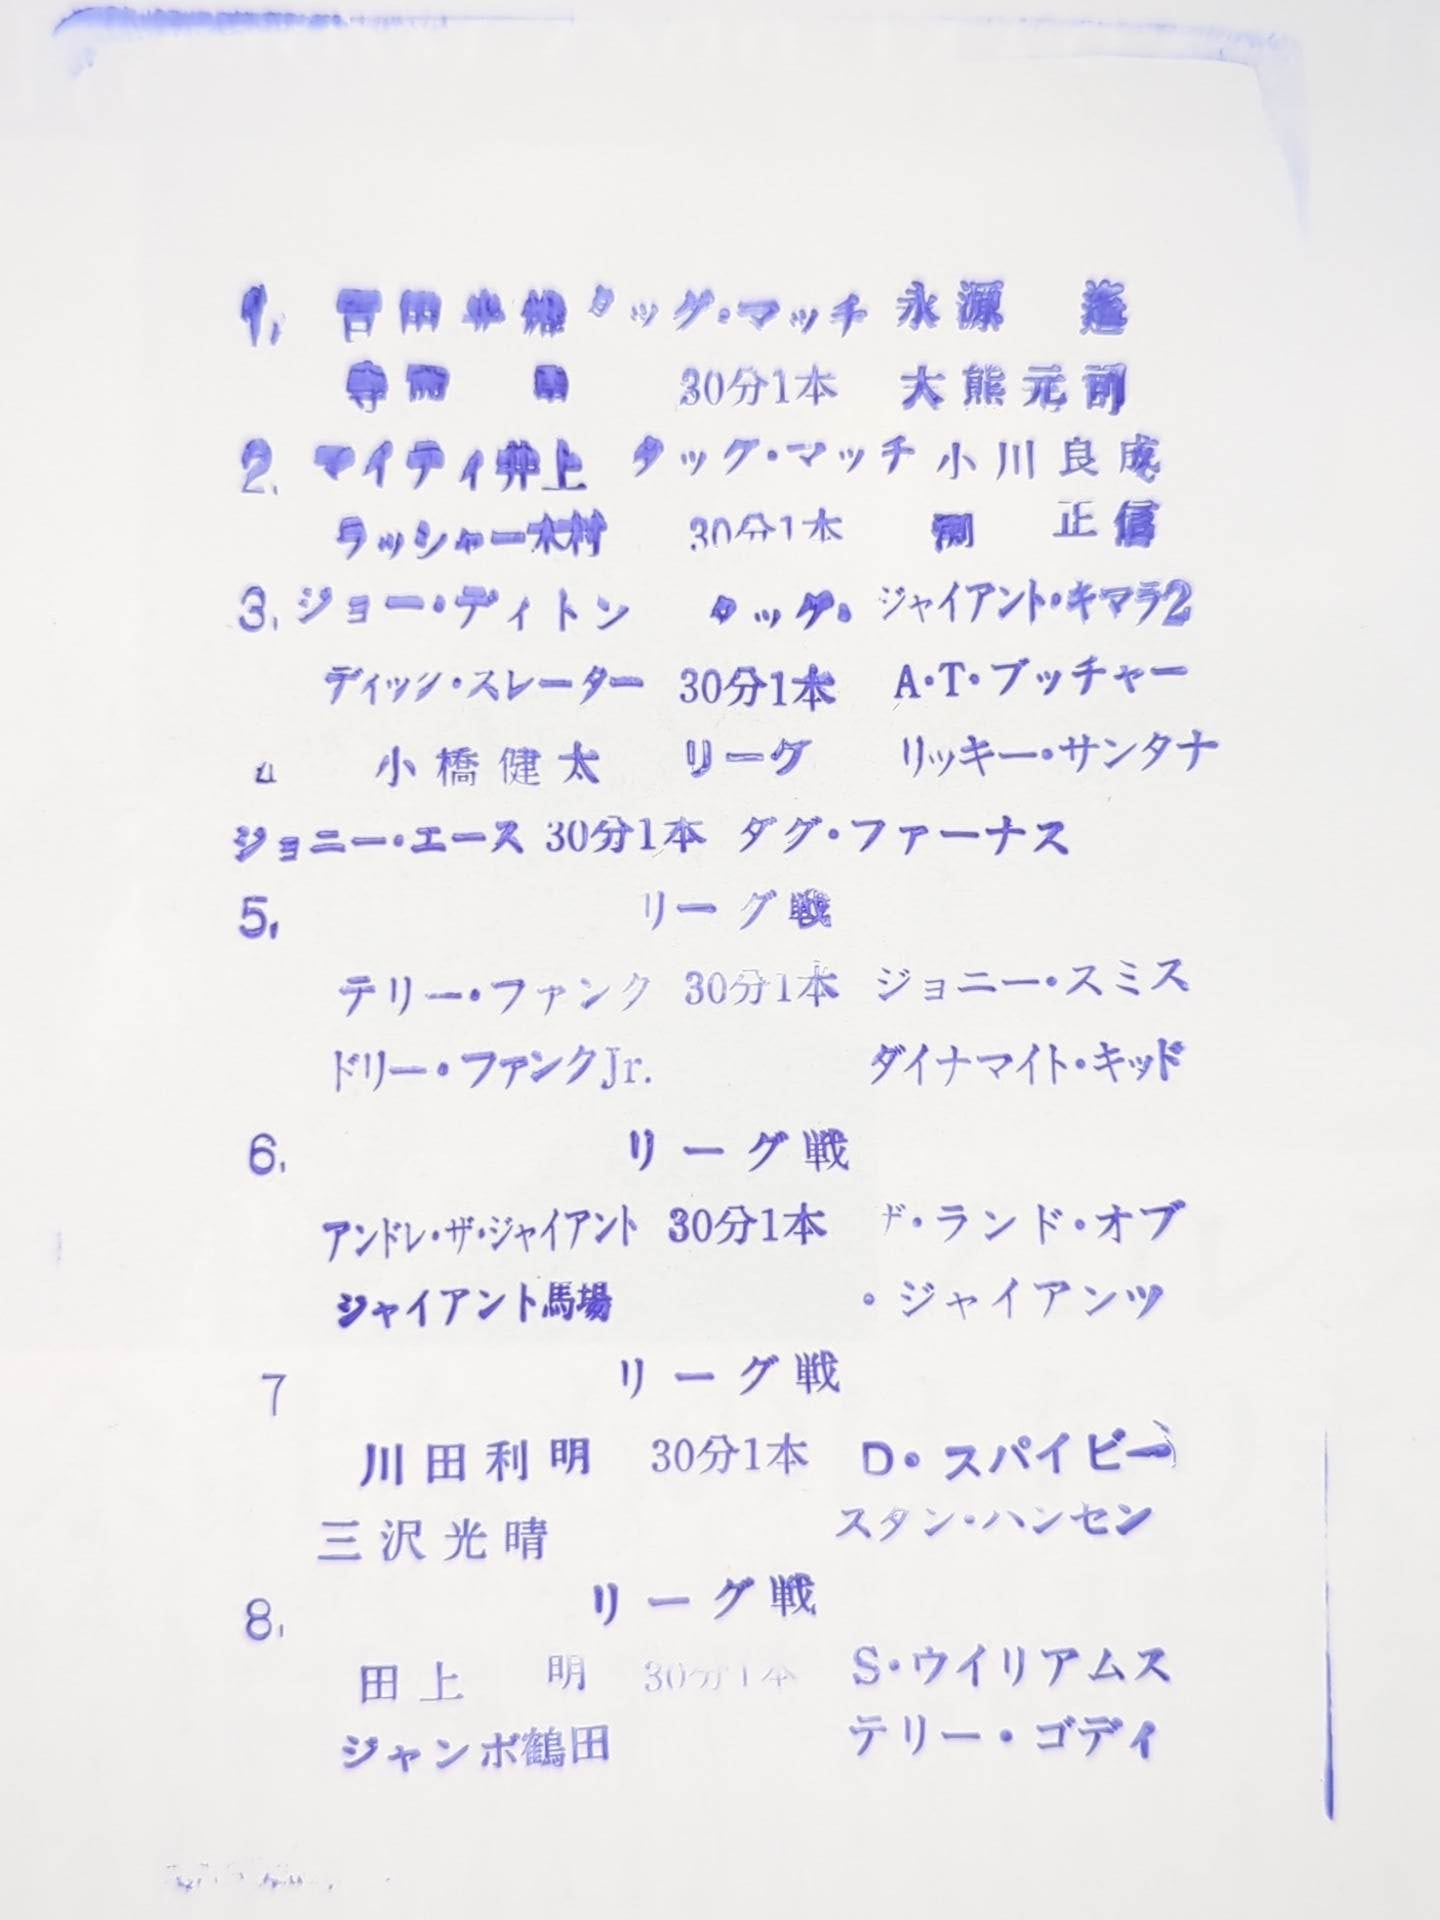 1. 百田光雄 タッグ・マッチ 永源 遙
寺西 勇 30分1本 大熊元司
2. マイティ井上 タッグ・マッチ 小川良成
ラッシャー木村 30分1本 渕 正信
3. ジョー・ディトン タッグ・ ジャイアント・キマラ2
ディック・スレーター 30分1本 A・T・ブッチャー
小橋健太 リーグ リッキー・サンタナ
ジョニー・エース 30分1本 ダグ・ファーナス
5. リーグ戦
テリー・ファンク 30分1本 ジョニー・スミス
ドリー・ファンクJr. ダイナマイト・キッド
6. リーグ戦
アンドレ・ザ・ジャイアント 30分1本 ザ・ランド・オブ
ジャイアント馬場 ・ジャイアンツ
7 リーグ戦
川田利明 30分1本 D・スパイビー
三沢光晴 スタン・ハンセン
8. リーグ戦
田上 明 30分1本 S・ウイリアムス
ジャンボ鶴田 テリー・ゴディ